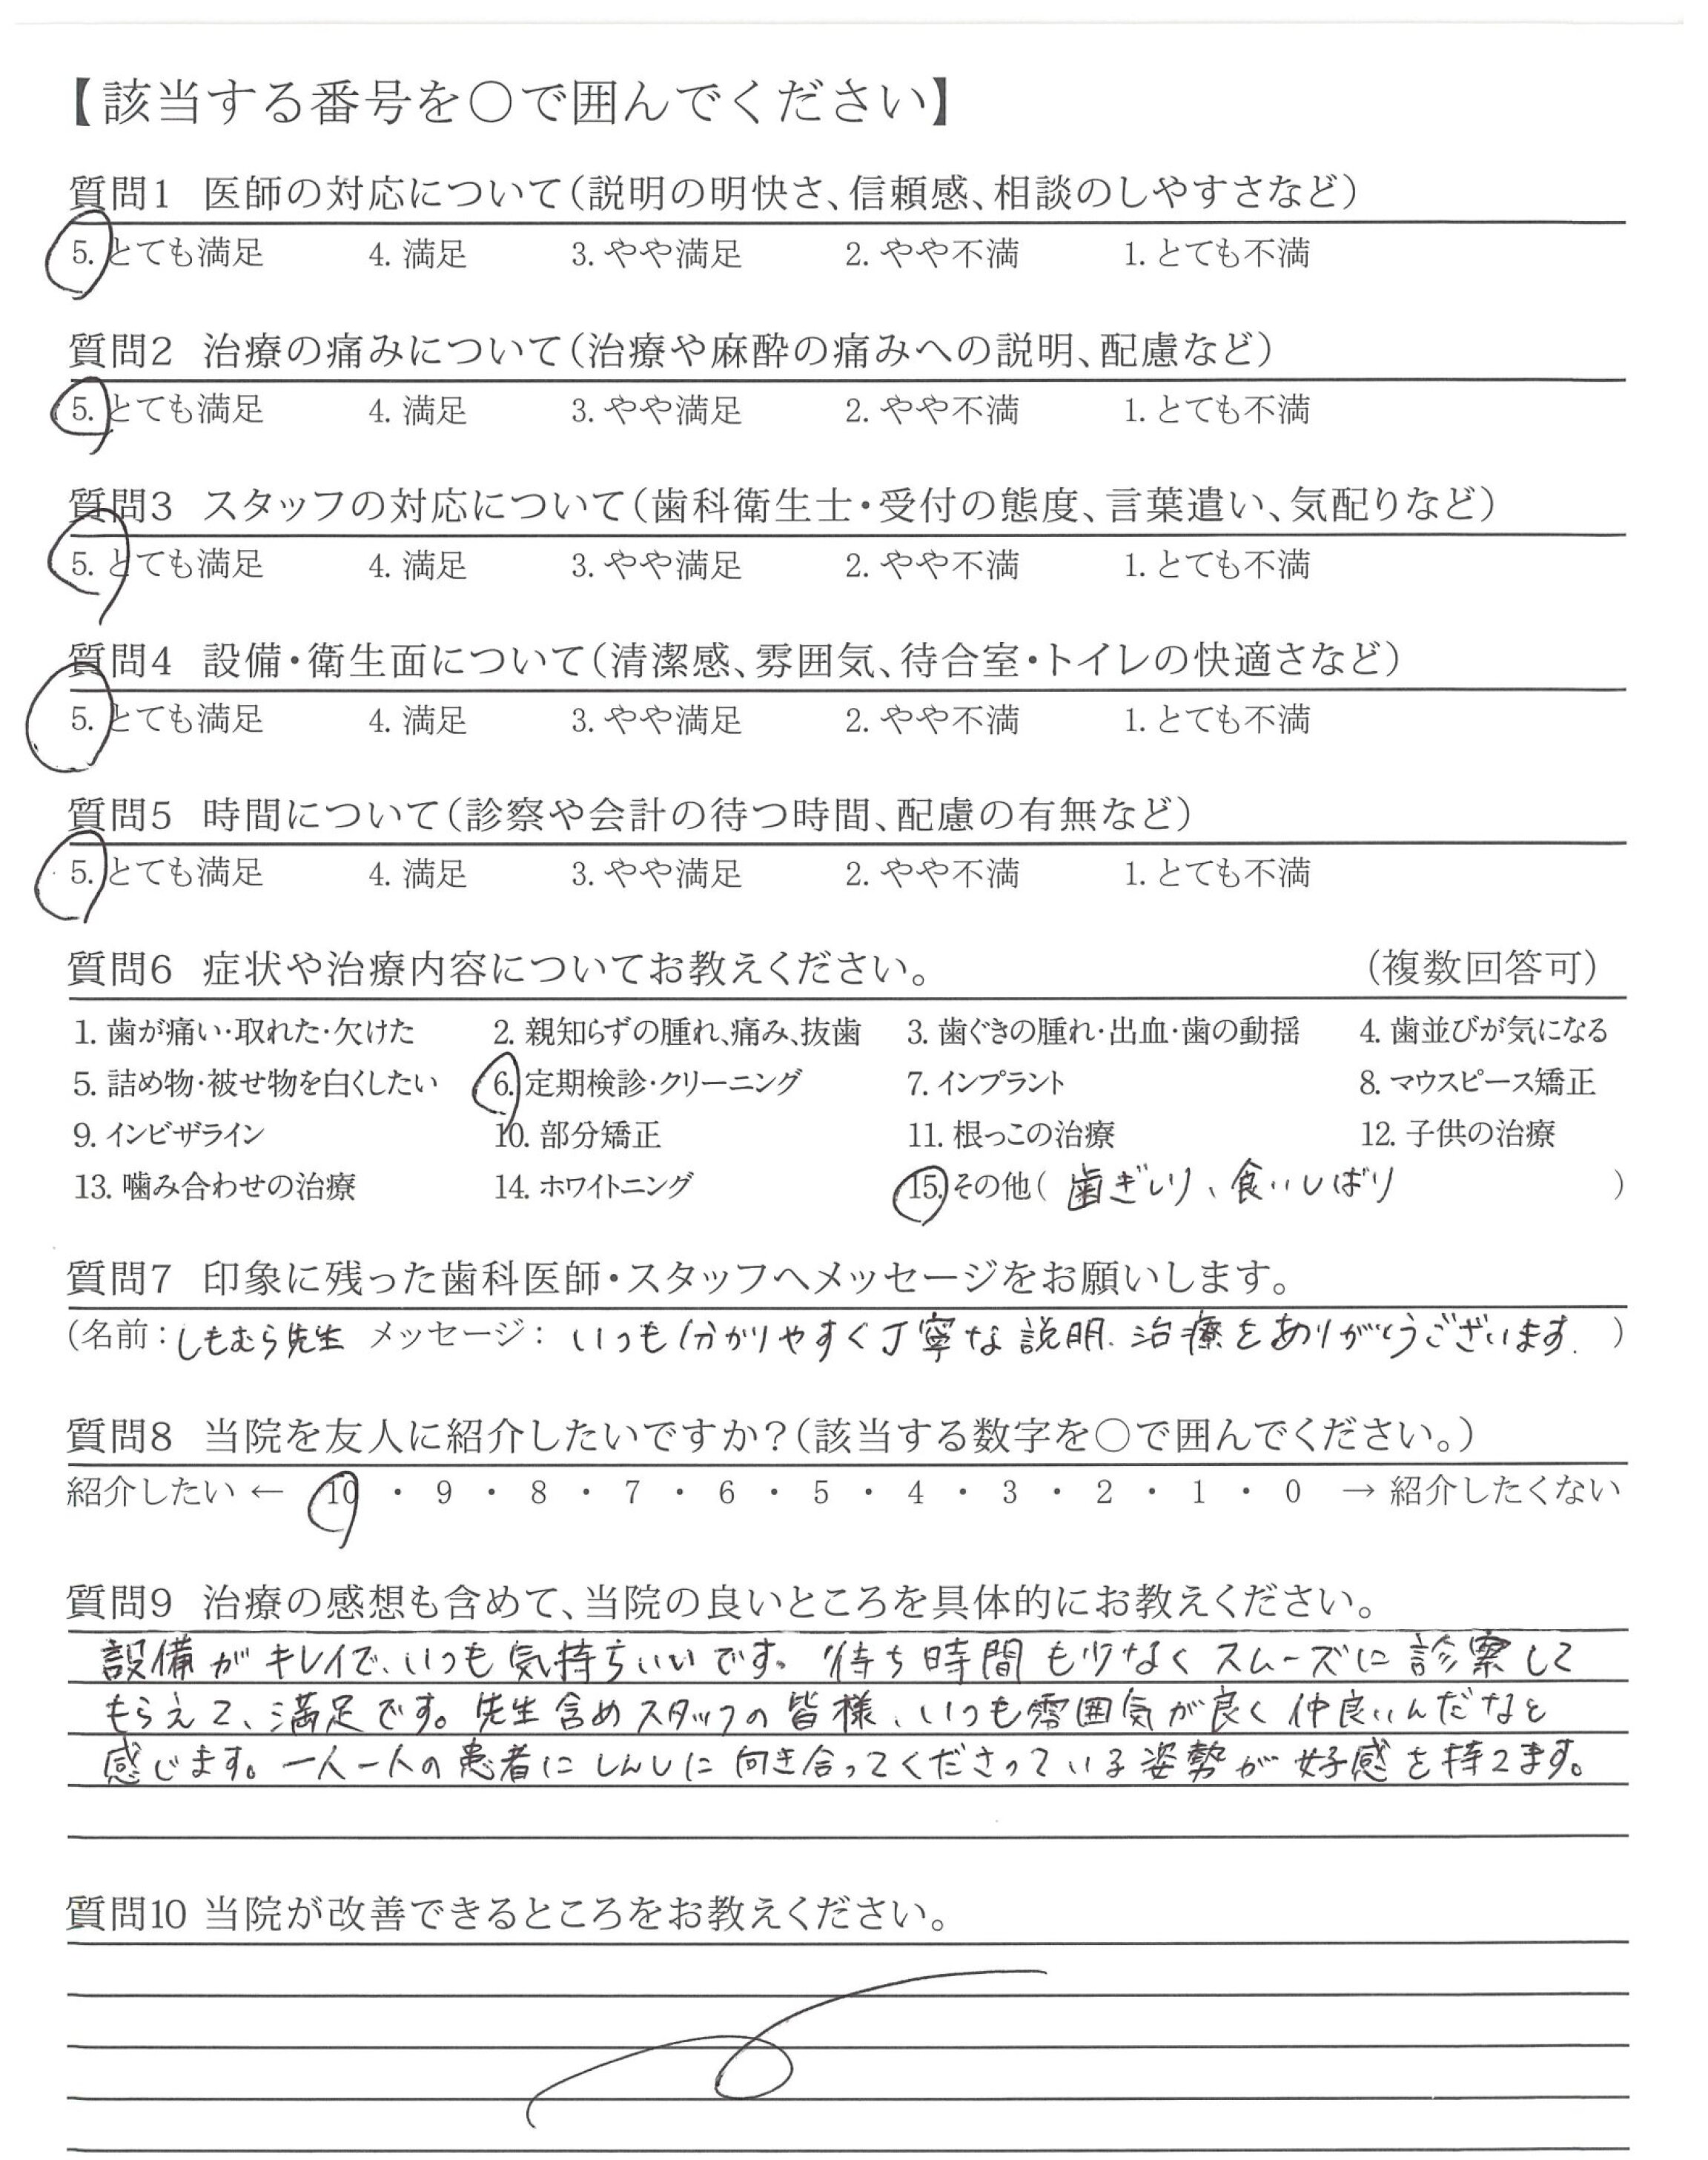 【該当する番号を○で囲んでください】
質問1 医師の対応について(説明の明快さ、信頼感、相談のしやすさなど)
5. とても満足 4. 満足 3. やや満足 2. やや不満 1. とても不満
質問2 治療の痛みについて(治療や麻酔の痛みへの説明、配慮など)
5. とても満足 4. 満足 3. やや満足 2. やや不満 1. とても不満
質問3 スタッフの対応について(歯科衛生士・受付の態度、言葉遣い、気配りなど)
5. とても満足 4. 満足 3. やや満足 2. やや不満 1. とても不満
質問4 設備・衛生面について(清潔感、雰囲気、待合室・トイレの快適さなど)
5. とても満足 4. 満足 3. やや満足 2. やや不満 1. とても不満
質問5 時間について(診察や会計の待つ時間、配慮の有無など)
5. とても満足 4. 満足 3. やや満足 2. やや不満 1. とても不満
質問6 症状や治療内容についてお教えください。 (複数回答可)
1. 歯が痛い・取れた・欠けた 2. 親知らずの腫れ、痛み、抜歯 3. 歯ぐきの腫れ・出血・歯の動揺 4. 歯並びが気になる
5. 詰め物・被せ物を白くしたい 6. 定期検診・クリーニング 7. インプラント 8. マウスピース矯正
9. インビザライン 10. 部分矯正 11. 根っこの治療 12. 子供の治療
13. 噛み合わせの治療 14. ホワイトニング 15. その他( 歯ぎしり、食いしばり )
質問7 印象に残った歯科医師・スタッフへメッセージをお願いします。
(名前:しもむら先生 メッセージ: いつも分かりやすく丁寧な説明、治療をありがとうございます. )
質問8 当院を友人に紹介したいですか?(該当する数字を○で囲んでください。)
紹介したい ← 10 ・ 9 ・ 8 ・ 7 ・ 6 ・ 5 ・ 4 ・ 3 ・ 2 ・ 1 ・ 0 → 紹介したくない
質問9 治療の感想も含めて、当院の良いところを具体的にお教えください。
設備がキレイで、いつも気持ちいいです。待ち時間も少なくスムーズに診察して
もらえて、満足です。先生含めスタッフの皆様、いつも雰囲気が良く仲良いんだなと
感じます。一人一人の患者にしんしに向き合ってくださっている姿勢が好感を持てます。
質問10 当院が改善できるところをお教えください。